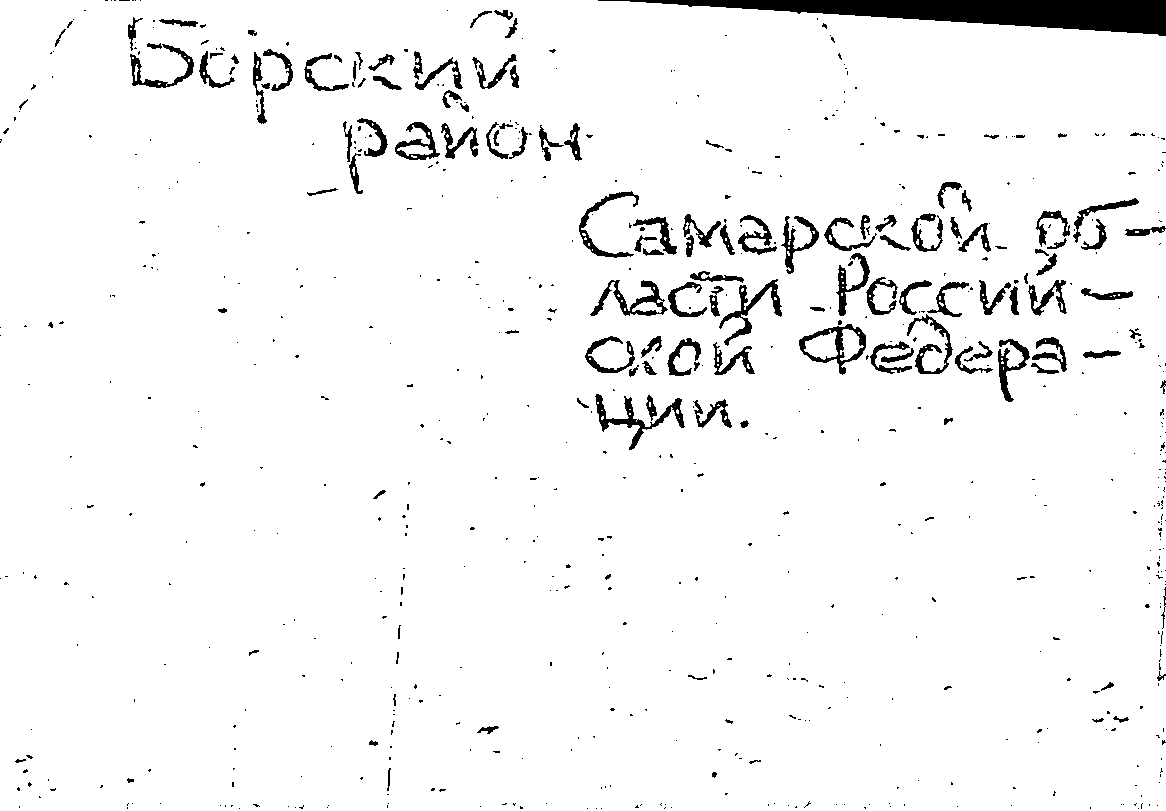 Борский
район
Самарской об-
ласти Россий-
ской Федера-
ции.